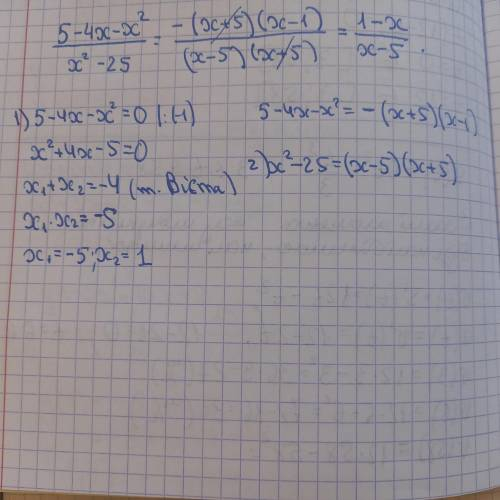 (5-4x-x²)/(x²-25) = (-(x+5)(x-1))/((x-5)(x+5)) = (1-x)/(x-5).
1) 5-4x-x²=0 |·(-1)
x²+4x-5=0
x₁+x₂=-4 (т. Вієта)
x₁·x₂=-5
x₁=-5; x₂=1
5-4x-x²=-(x+5)(x-1)
2) x²-25=(x-5)(x+5)